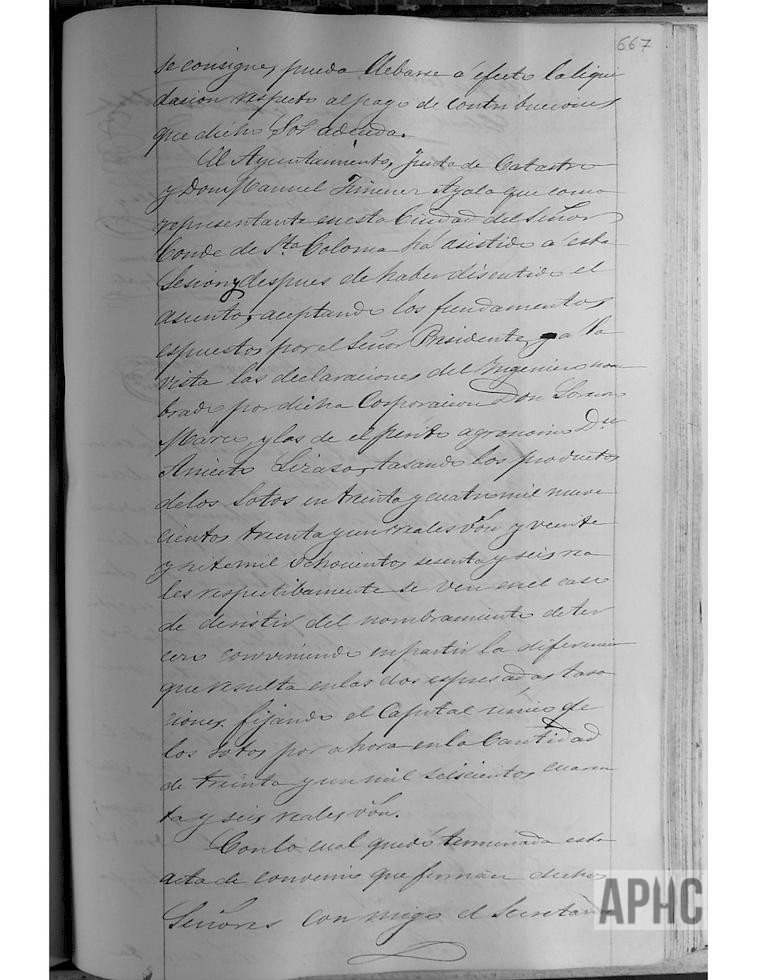 667
se consigne, pueda llebarse á efecto la liqui
dacion respecto al pago de contribuciones
que dicho Sot adeuda.
El Ayuntamiento, Junta de Catastro
y Don Manuel Jimener Ayala que como
representante en esta Ciudad del Señor
Conde de Sta. Coloma ha asistido á esta
Sesion y despues de haber discutido el
asunto, aceptando los fundamentos
espuestos por el Señor Presidente, y a la
vista las declaraciones del Ingeniero nom
brado por dicha Corporacion Don Lorenzo
y las de el perito agronomo Dn
Aniceto Lizaso, tasando los productos
de los Sotos en treinta y cuatro mil nueve
cientos treinta y un reales von y veinte
y siete mil ochocientos sesenta y seis rea
les respectibamente se ven en el caso
de desistir del nombramiento de ter
cero conviniendo en partir la diferencia
que resulta en las dos espresadas tasa
ciones, fijando el Capital único de
los sotos por ahora en la Cantidad
de treinta y un mil seiscientos cuaren
ta y seis reales von.
Con lo cual quedó terminada esta
acta de convenio que firman dichos
Señores con migo el Secretario
APHC